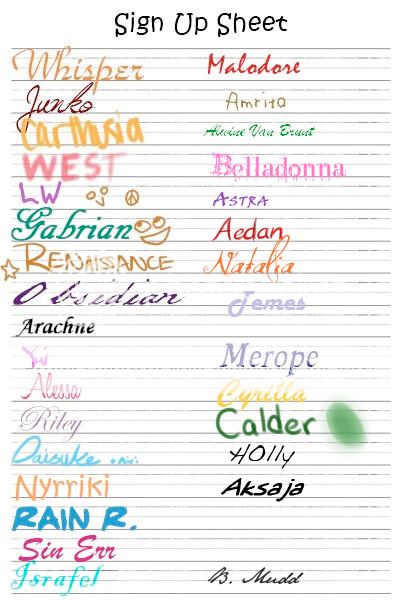 Sign Up Sheet
Whisper
Junko
Carthusia
WEST
LW
Gabrian
RENAISSANCE
Obsidian
Arachne
Yui
Alessa
Riley
Daisuke + Airi
Nyrriki
RAIN R.
Sin Err
Israfel
Malodore
Amrita
Alwine Van Brunt
Belladonna
ASTRA
Aedan
Natalia
Jemes
Merope
Cyrilla
Calder
HOlly
Aksaja
B. Mudd